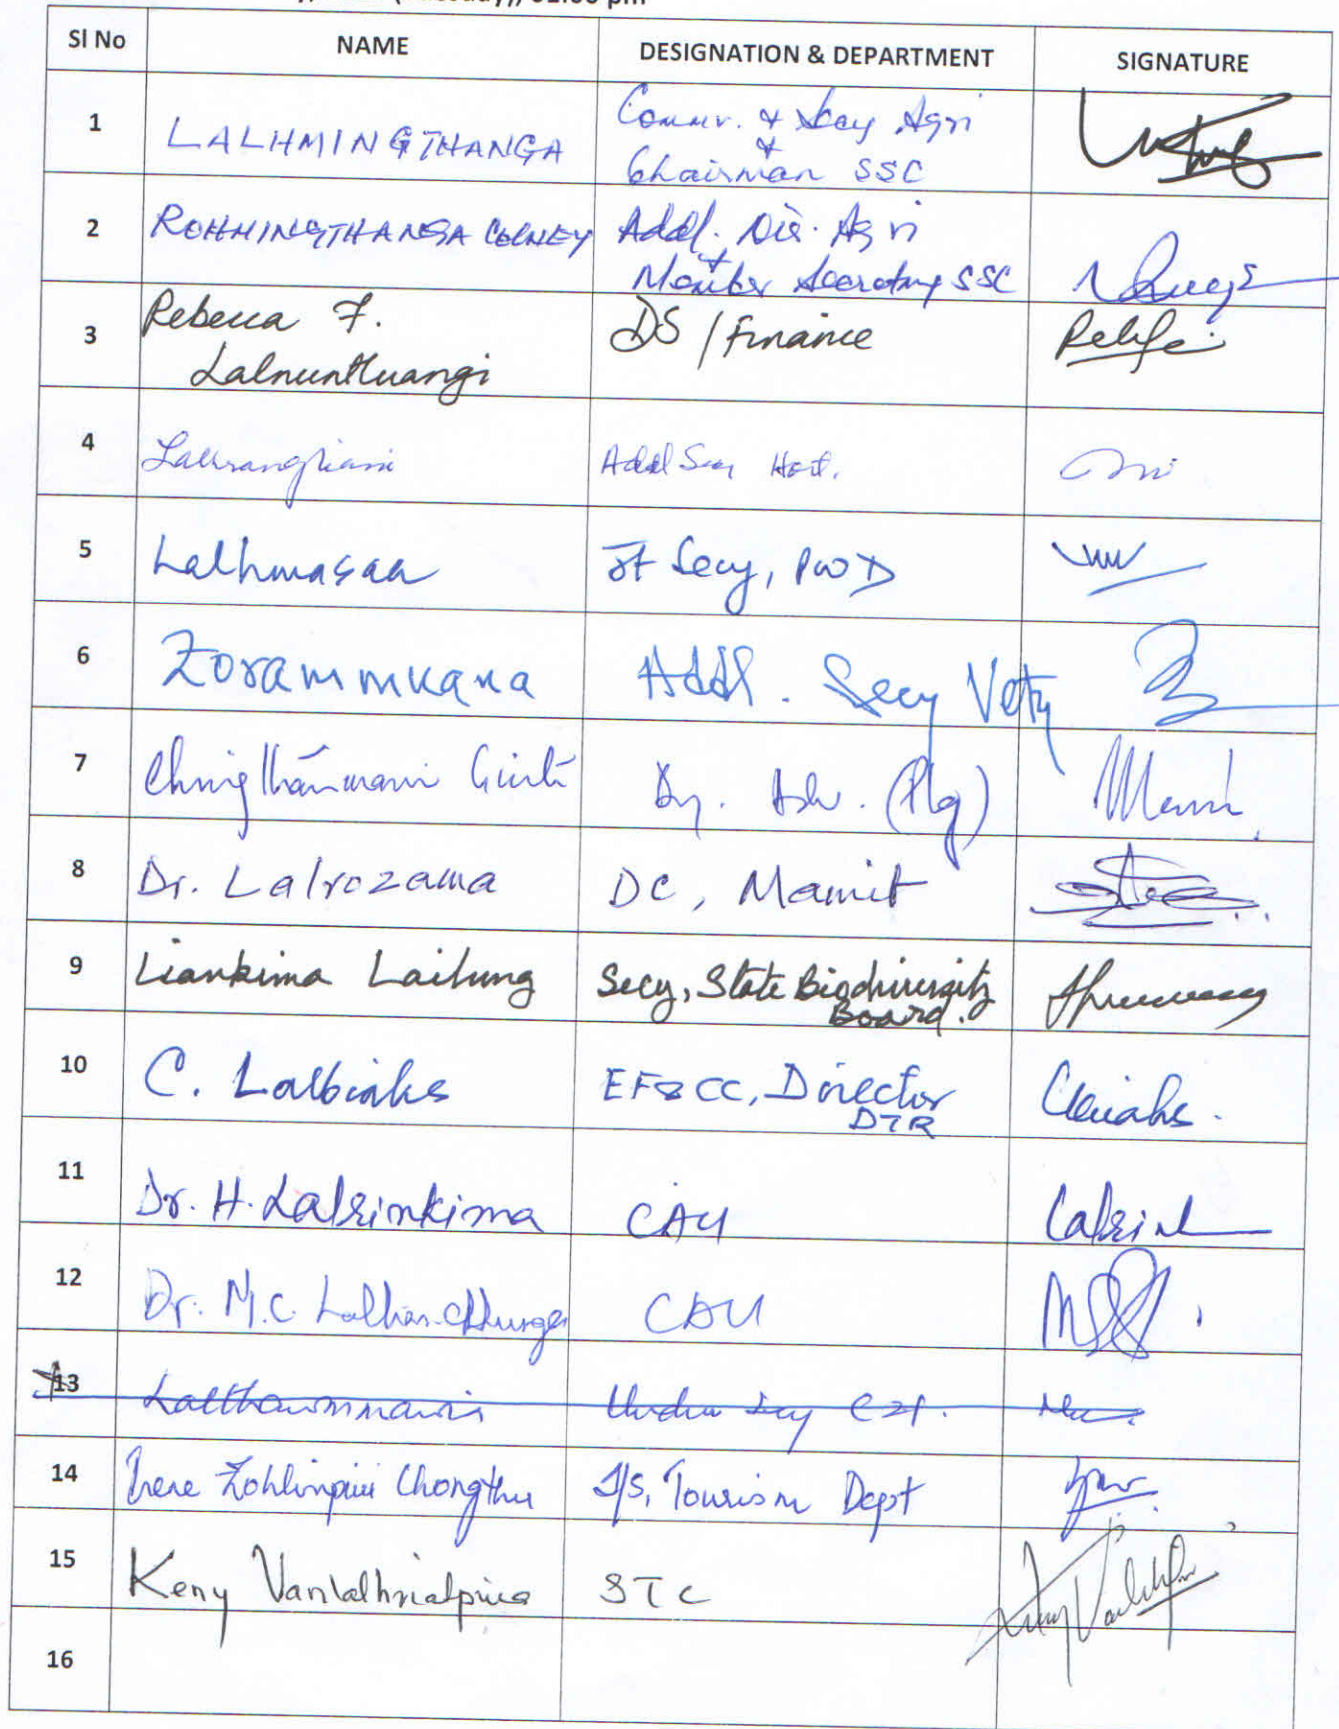 pm
Sl No NAME DESIGNATION & DEPARTMENT SIGNATURE
1 LALHMINGTHANGA Commr. & Secy Agri
&
Chairman SSC
2 ROHMINGTHANGA COLNEY Addl. Dir. Agri
&
Member Secretary SSC
3 Rebecca F. DS / Finance
Lalnunthuangi
4 Addl Secy Hort.
5 Lalhmasaa Jt Secy, PWD
6 Zorammuana Addl. Secy Vety
7 Dy. Adv. (Plg)
8 Dr. Lalrozama DC, Mamit
9 Liankima Lailung Secy, State Biodiversity
Board.
10 C. Lalbiaka EF&CC, Director
DTR
11 Dr. H. Lalrinkima CAU
12 Dr. M.C. CAU
13 Lalthawmmawia Under Secy
14 Irene Zohlimpuii Chongthu J/S, Tourism Dept
15 Keny Vanlalhriatpuia STC
16